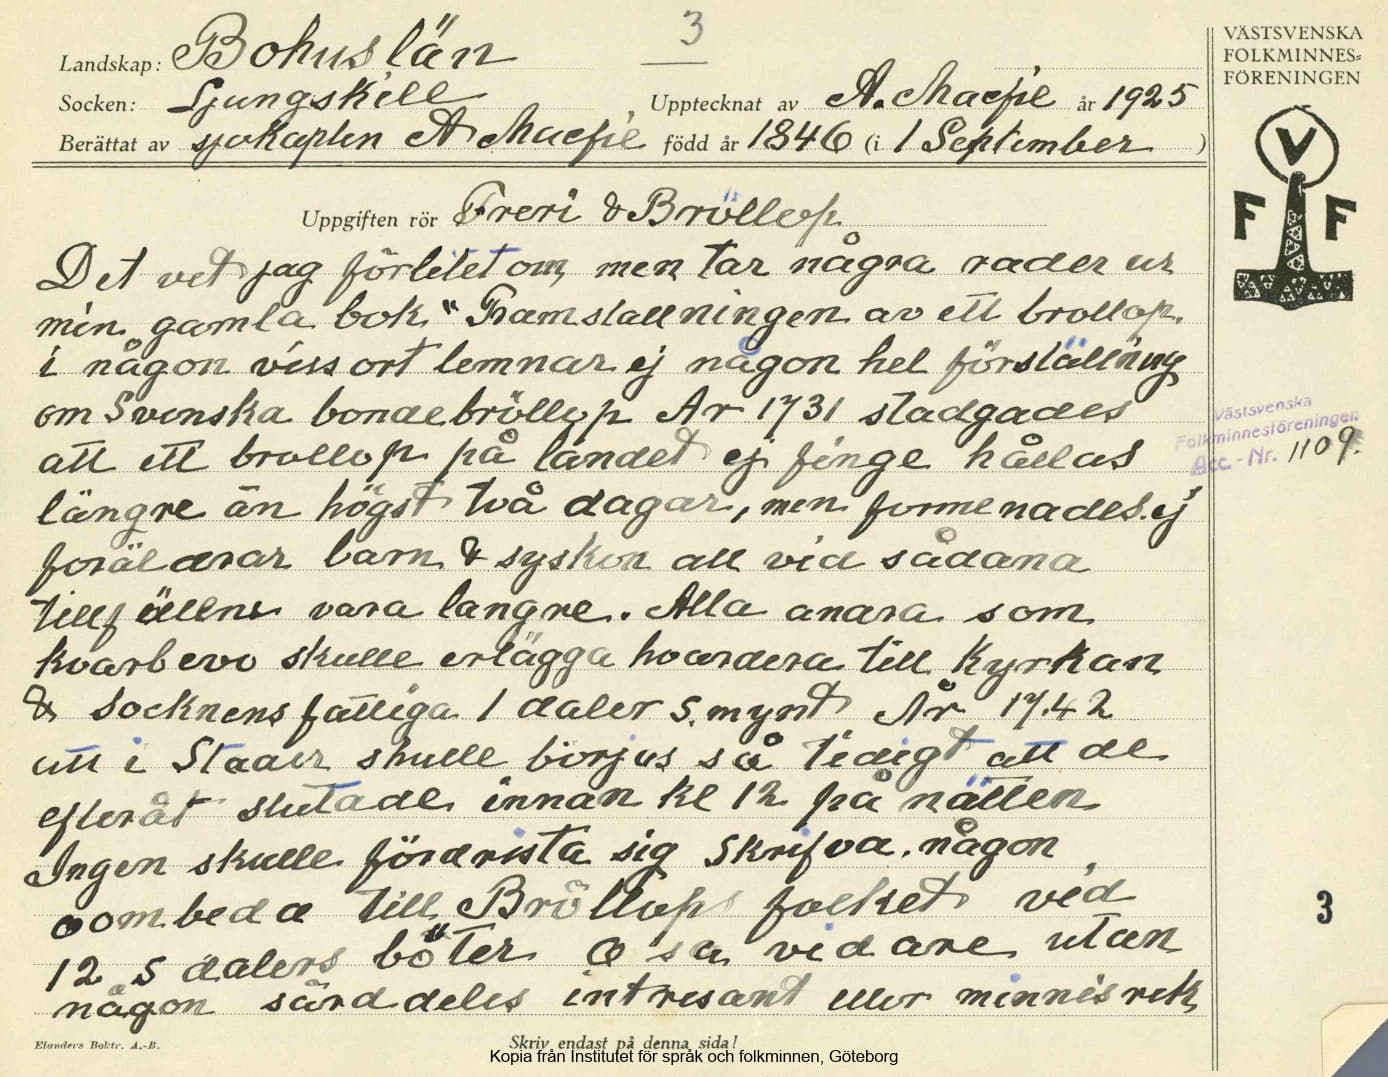 3
Landskap: Bohuslän
Socken: Ljungskile
Upptecknat av A. Macfie år 1925
Berättat av sjökapten A Macfie född år 1846 (i 1 September )
Uppgiften rör Freri & Bröllop
Det vet jag förlitet om, men tar några rader ur
min gamla bok "Framstallningen av ett brollop.
i någon viss ort lemnar ej någon hel förställning
om Svenska bondebröllop Ar 1731 stadgades
att ett brollop på landet ej finge hållas
längre än högst två dagar, men formenades ej
föräldrar barn & syskon att vid sådana
tillfällen vara langre. Alla andra som
kvarblevo skulle erlägga hvardera till Kyrkan
& Socknens fattiga 1 daler S. mynt År 1742
att i Stader skulle börjas så tidigt att de
efteråt slutade innan kl 12 på nätten
Ingen skulle fördrista sig Skrifva någon
oombedd till Bröllops folket vid
12 S dalers böter O sa vidare utan
någon särddeles intresant eller minnisrik
VÄSTSVENSKA
FOLKMINNES=
FÖRENINGEN
V
F F
Västsvenska
Folkminnesföreningen
Acc.-Nr. 1109.
3
Elanders Boktr. A.-B.
Skriv endast på denna sida!
Kopia från Institutet för språk och folkminnen, Göteborg